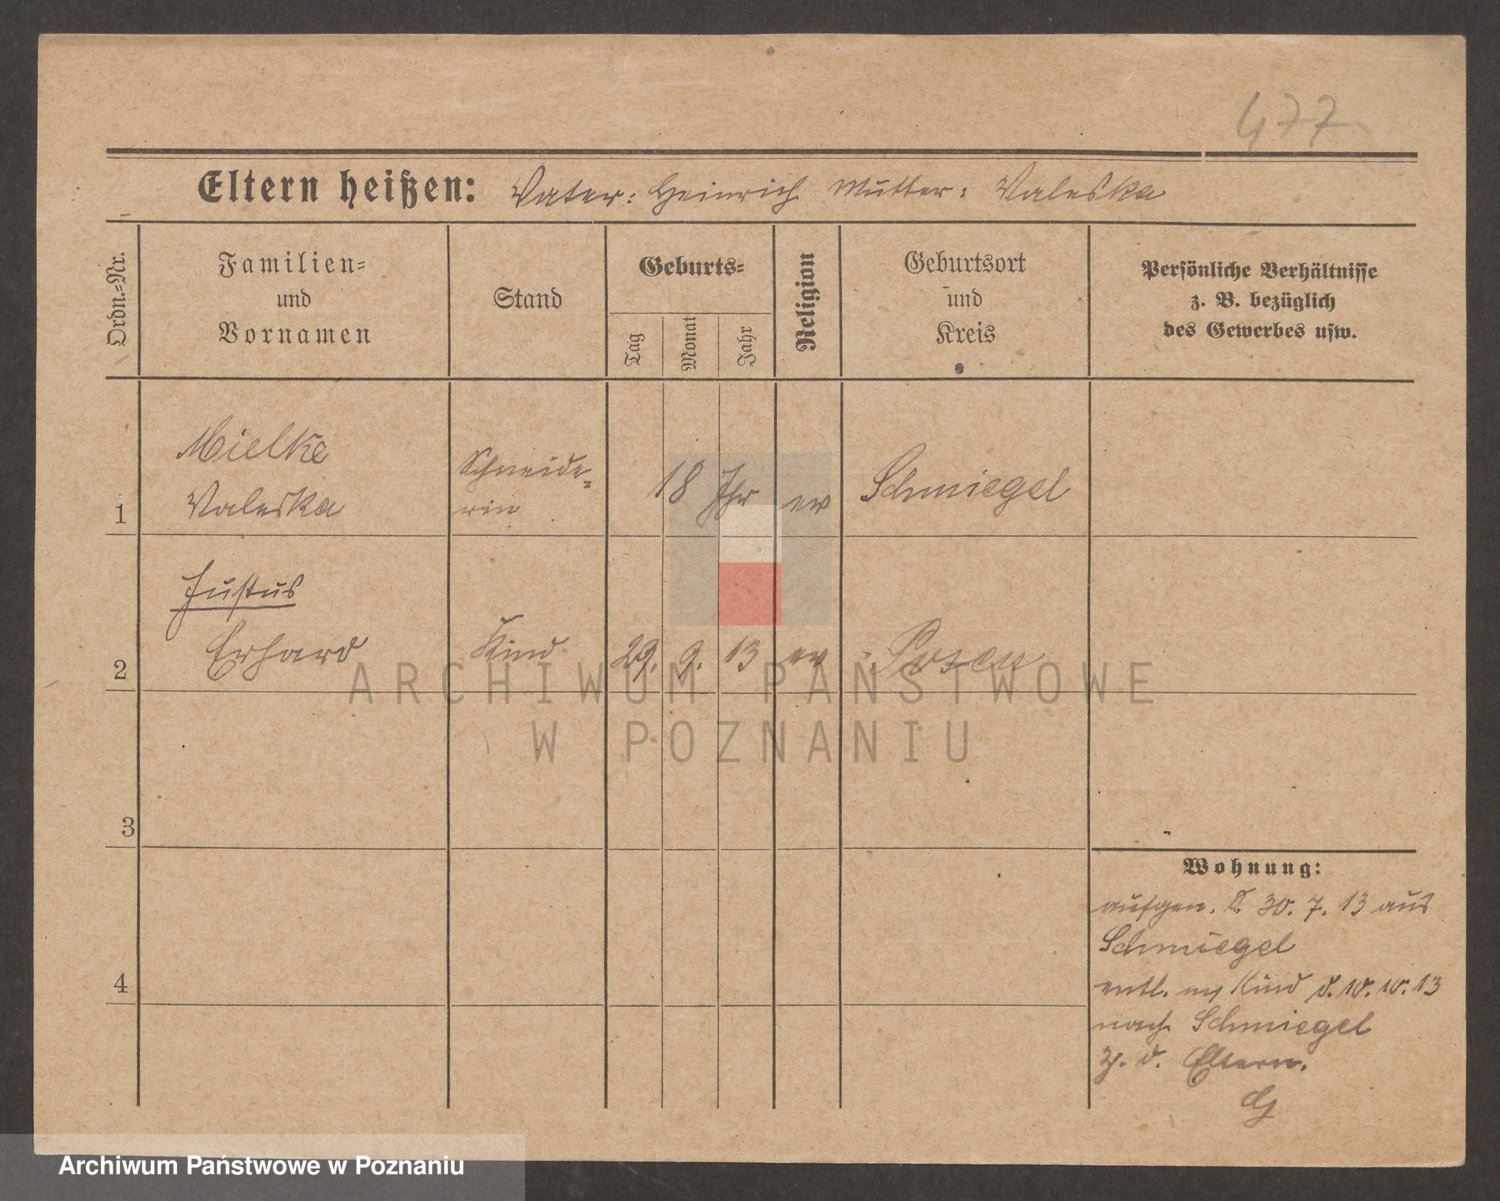 477
Eltern heißen: Vater: Heinrich Mutter: Valeska
Ordn.-Nr.
Familien-
und
Vornamen
Stand
Geburts-
Tag
Monat
Jahr
Religion
Geburtsort
und
Kreis
Persönliche Verhältnisse
z. B. bezüglich
des Gewerbes usw.
1
Mielke
Valeska
Schneide-
rin
18 Jhr
ev
Schmiegel
2
Justus
Erhard
Kind
29. 9. 13
ev
Posen
ARCHIWUM PAŃSTWOWE
W POZNANIU
3
4
Wohnung:
aufgen. d. 30. 7. 13 aus
Schmiegel
entl. m/ Kind d. 10. 10. 13
nach Schmiegel
z. d. Eltern.
Archiwum Państwowe w Poznaniu